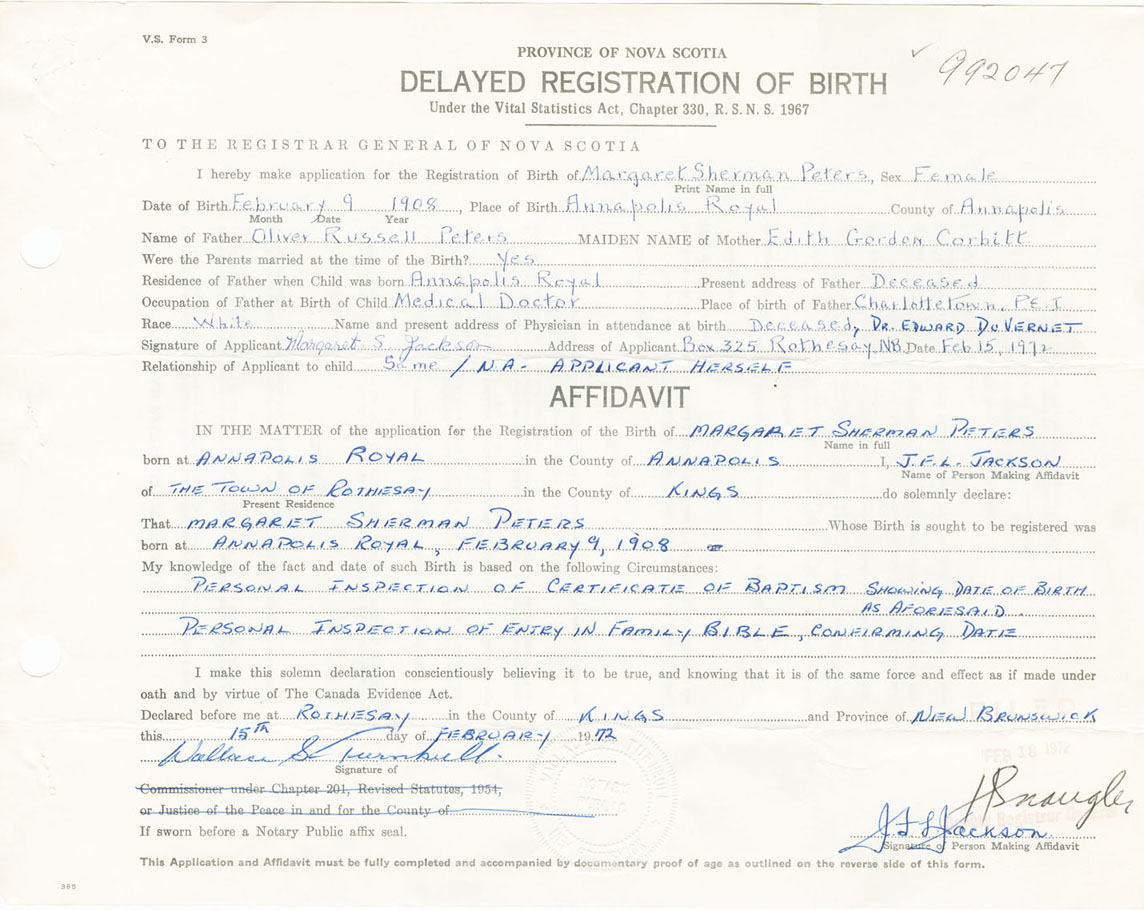 V.S. Form 3
PROVINCE OF NOVA SCOTIA
✓ 992047
DELAYED REGISTRATION OF BIRTH
Under the Vital Statistics Act, Chapter 330, R.S.N.S. 1967
TO THE REGISTRAR GENERAL OF NOVA SCOTIA
I hereby make application for the Registration of Birth of Margaret Sherman Peters, Sex Female
Print Name in full
Date of Birth February 9 1908, Place of Birth Annapolis Royal County of Annapolis
Month Date Year
Name of Father Oliver Russell Peters MAIDEN NAME of Mother Edith Gordon Corbitt
Were the Parents married at the time of the Birth? Yes
Residence of Father when Child was born Annapolis Royal Present address of Father Deceased
Occupation of Father at Birth of Child Medical Doctor Place of birth of Father Charlottetown, P.E.I
Race White Name and present address of Physician in attendance at birth Deceased, DR. EDWARD DUVERNET
Signature of Applicant Margaret S. Jackson Address of Applicant Box 325 Rothesay, NB Date Feb 15, 1972
Relationship of Applicant to child Same / N.A- APPLICANT HERSELF
AFFIDAVIT
IN THE MATTER of the application for the Registration of the Birth of MARGARET SHERMAN PETERS
Name in full
born at ANNAPOLIS ROYAL in the County of ANNAPOLIS I, J.F.L. JACKSON
Name of Person Making Affidavit
of THE TOWN OF ROTHESAY in the County of KINGS do solemnly declare:
Present Residence
That MARGARET SHERMAN PETERS Whose Birth is sought to be registered was
born at ANNAPOLIS ROYAL, FEBRUARY 9, 1908
My knowledge of the fact and date of such Birth is based on the following Circumstances:
PERSONAL INSPECTION OF CERTIFICATE OF BAPTISM SHOWING DATE OF BIRTH
AS AFORESAID.
PERSONAL INSPECTION OF ENTRY IN FAMILY BIBLE, CONFIRMING DATE
I make this solemn declaration conscientiously believing it to be true, and knowing that it is of the same force and effect as if made under
oath and by virtue of The Canada Evidence Act.
Declared before me at ROTHESAY in the County of KINGS and Province of NEW BRUNSWICK
FILED
this 15th day of FEBRUARY 1972
FEB 18 1972
Wallace S. Turnbull.
Signature of
Commissioner under Chapter 201, Revised Statutes, 1954,
or Justice of the Peace in and for the County of
Registrar General
If sworn before a Notary Public affix seal.
J F L Jackson
Signature of Person Making Affidavit
This Application and Affidavit must be fully completed and accompanied by documentary proof of age as outlined on the reverse side of this form.
385